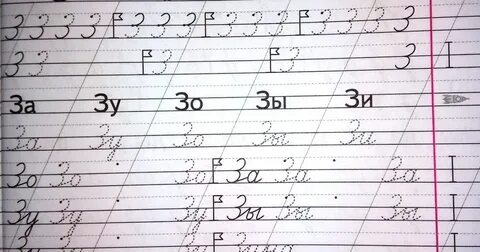 З З З З З З З З З З З З З З
З З З З З
За Зу Зо Зы Зи
За Зу Зо Зы Зи
Зо Зо Зо За За За
Зу Зу Зу Зы Зы Зы